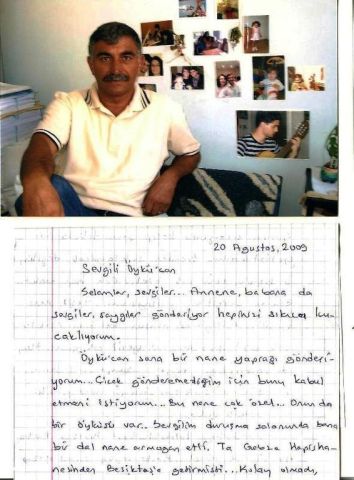 20 Ağustos, 2009
Sevgili Öykü'can
Selamlar, sevgiler... Annene, babana da
sevgiler, saygılar gönderiyor hepinizi sıkıca ku-
caklıyorum.
Öykü'can sana bir nane yaprağı gönderi-
yorum... Çiçek gönderemediğim için bunu kabul
etmeni istiyorum... Bu nane çok özel... Onun da
bir öyküsü var. Sevgilim duruşma salonunda bana
bir dal nane armağan etti. Ta Gebze Hapisha-
nesinden Beşiktaş'a getirmişti... Kolay olmadı,